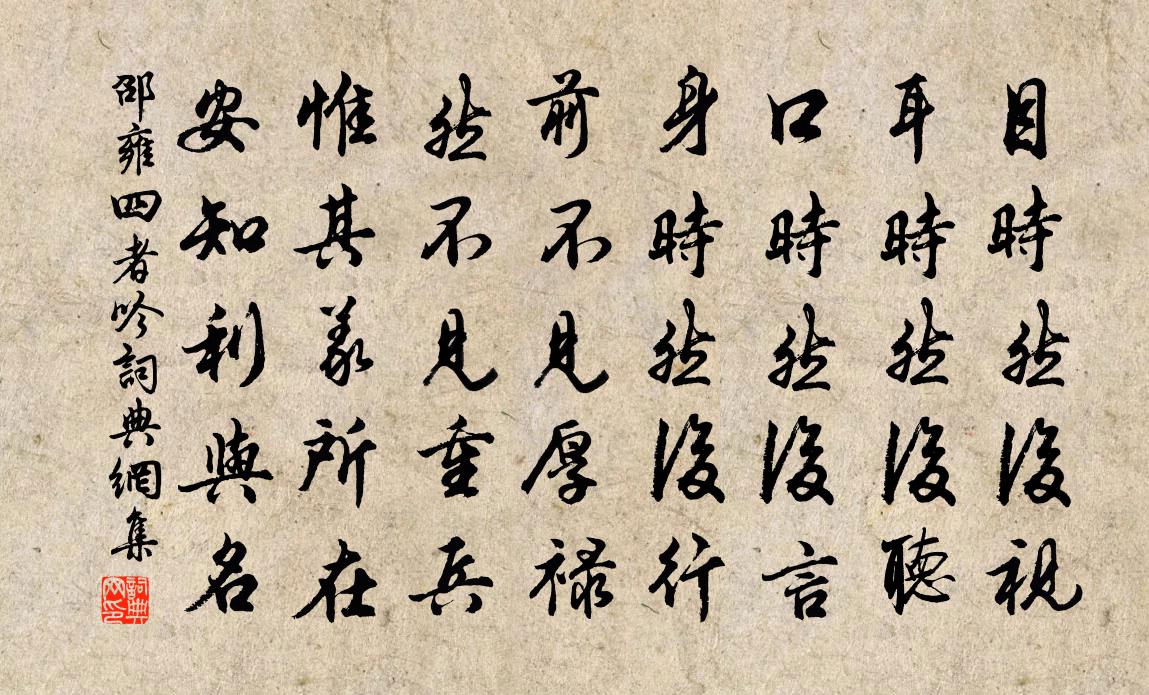 目時然後視
耳時然後聽
口時然後言
身時然後行
前不見厚禄
然不見重兵
惟其義所在
安知利與名
邵雍四者吟詞典網集
詞典